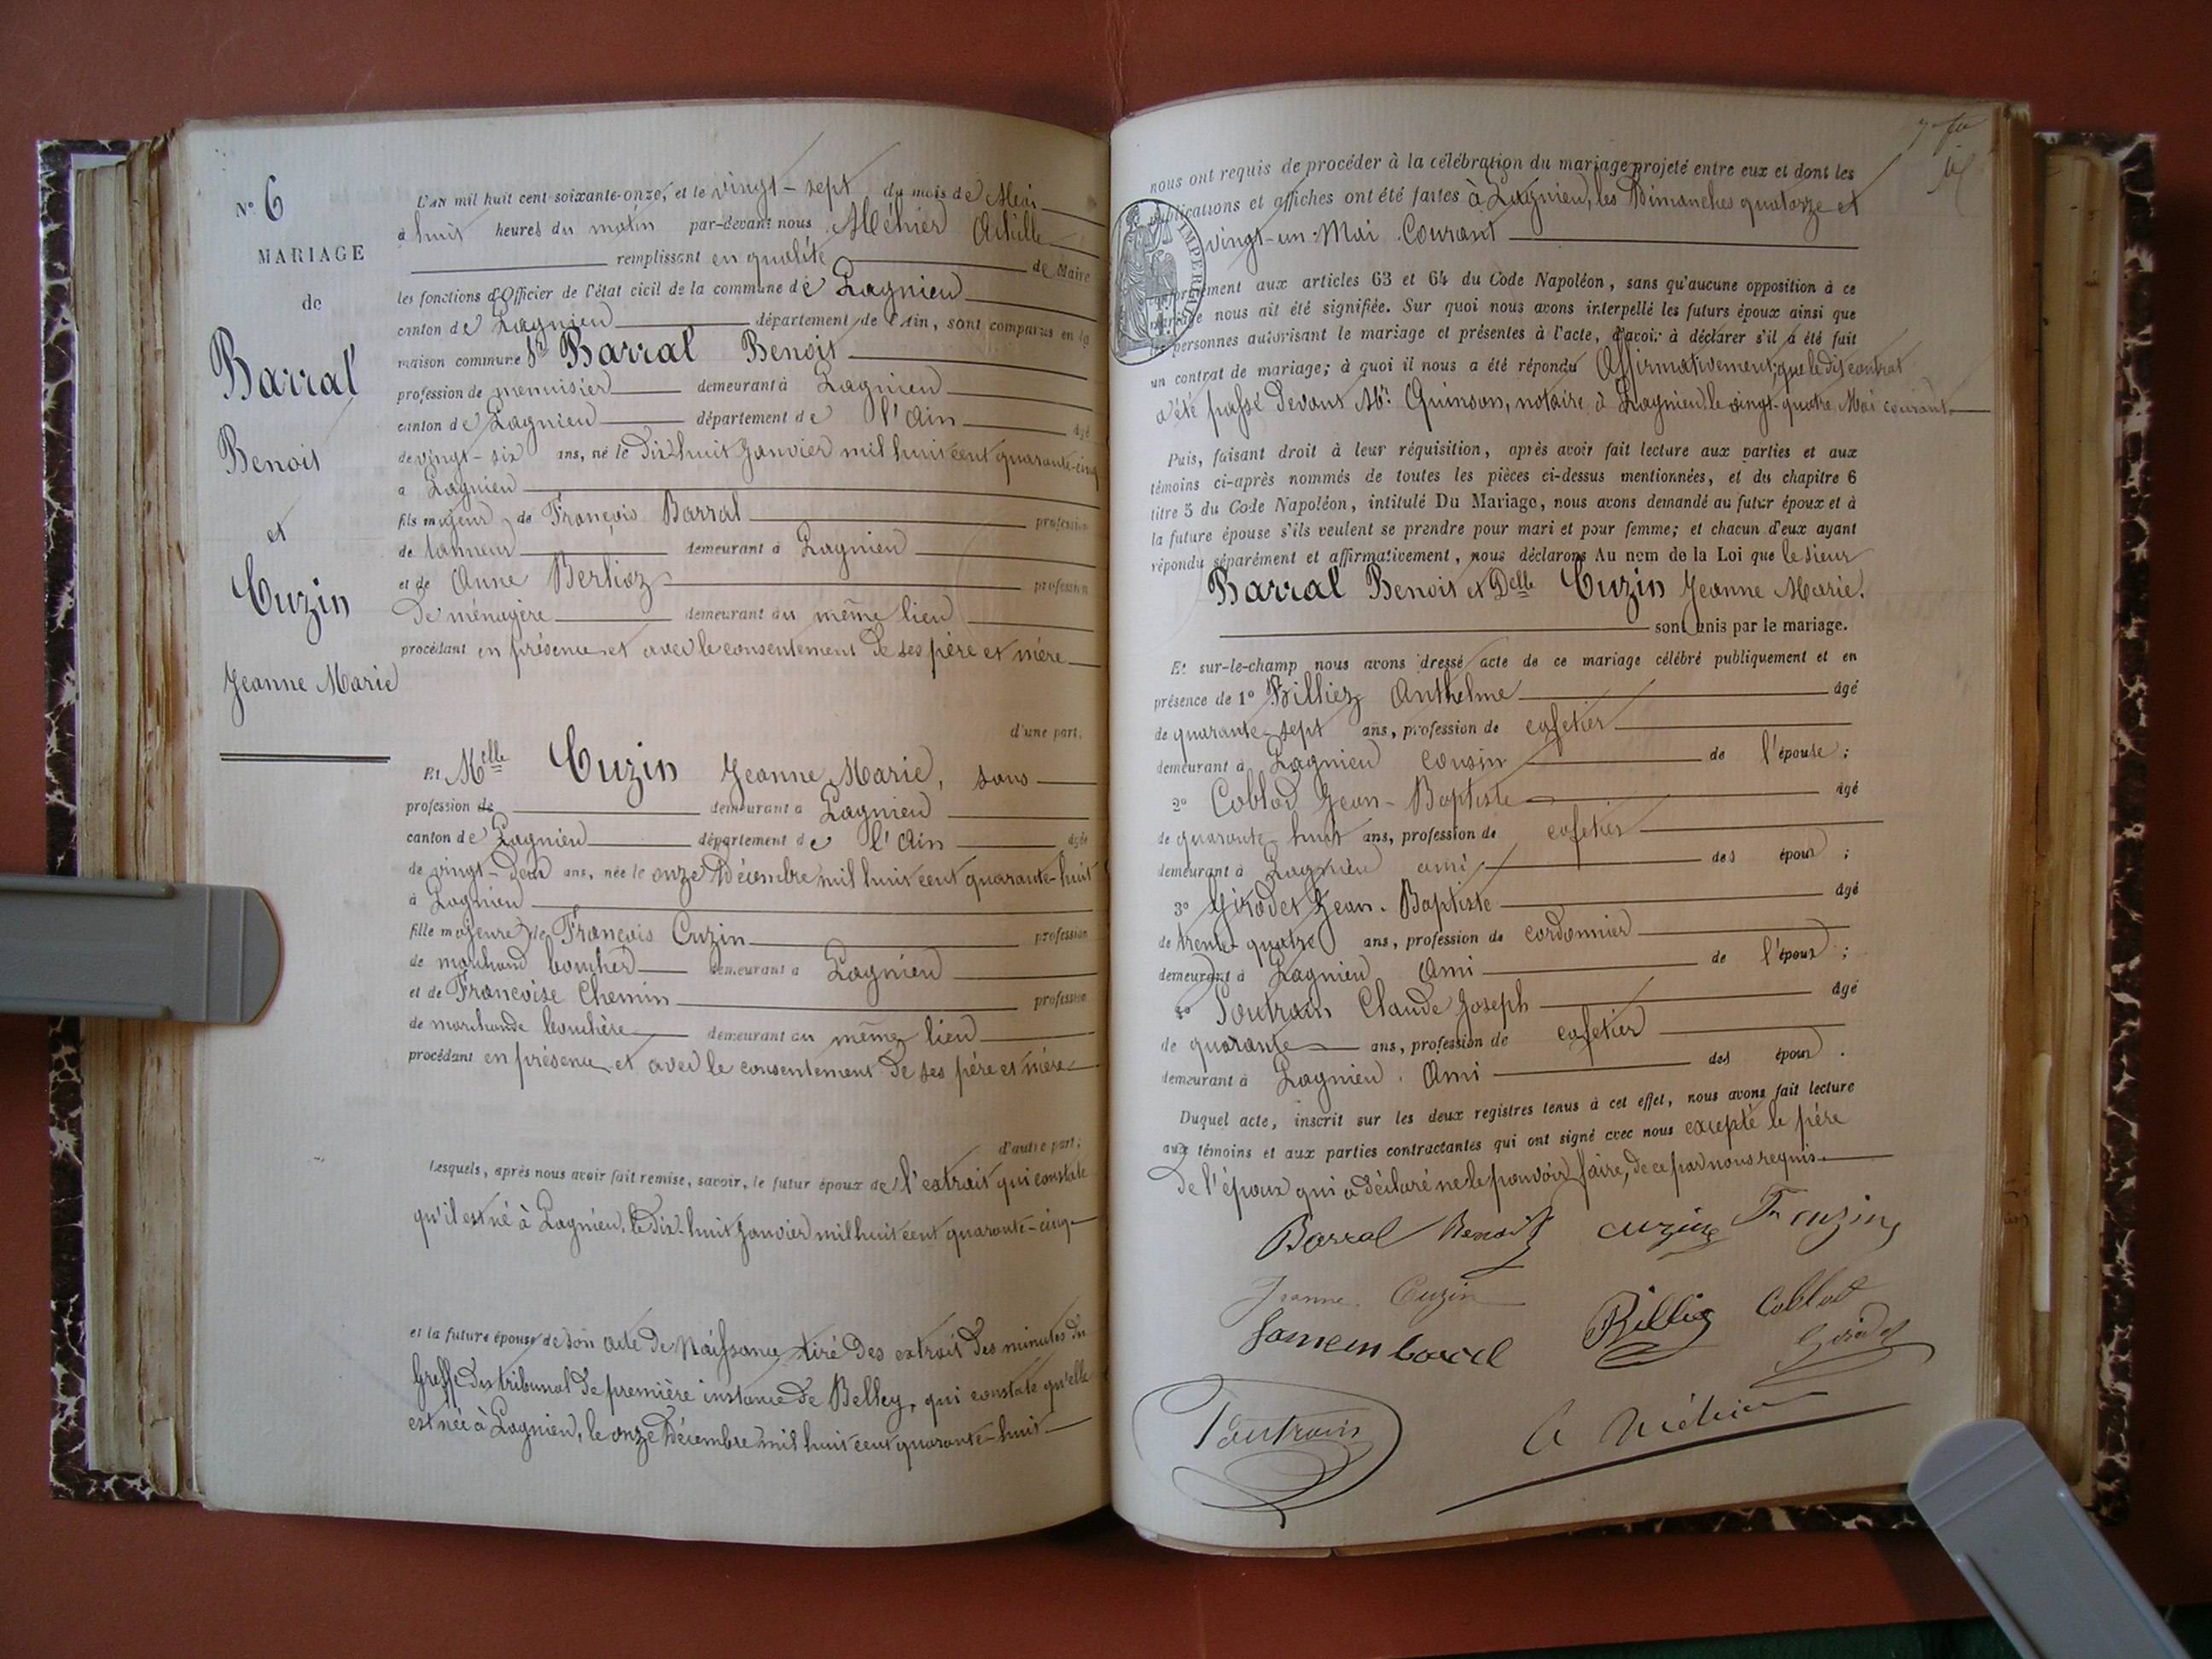 N.º 6
MARIAGE
de
Barral
Benoit
et
Cuzin
Jeanne Marie
L'an mil huit cent soixante-onze, et le vingt-sept du mois de Mai
à huit heures du matin par-devant nous Méhier Achille
remplissant en qualité de Maire
les fonctions d'Officier de l'état civil de la commune de Lagnieu
canton de Lagnieu département de l'Ain, sont comparus en la
maison commune Sr Barral Benoit
profession de menuisier demeurant à Lagnieu
canton de Lagnieu département de l'Ain âgé
de vingt-six ans, né le dix huit Janvier mil huit cent quarante-cinq
a Lagnieu
fils majeur de François Barral profession
de tanneur demeurant à Lagnieu
et de Anne Berlioz profession
de ménagère demeurant au même lieu
procédant en présence et avec le consentement de ses père et mère
d'une part,
Et Melle Cuzin Jeanne Marie, sans
profession de demeurant a Lagnieu
canton de Lagnieu département de l'Ain âgée
de vingt-deux ans, née le onze Décembre mil huit cent quarante-huit
à Lagnieu
fille majeure de François Cuzin profession
de marchand boucher demeurant a Lagnieu
et de Francoise Chemin profession
de marchande bouchère demeurant au même lieu
procédant en présence et avec le consentement de ses père et mère
d'autre part;
Lesquels, après nous avoir fait remise, savoir, le futur époux de l'extrait qui constate
qu'il est né à Lagnieu, le dix-huit Janvier mil huit cent quarante-cinq
et la future épouse de son acte de Naissance tiré des extrait des minutes du
Greffe du tribunal de première instance de Belley, qui constate qu'elle
est née à Lagnieu, le onze Décembre mil huit cent quarante-huit
nous ont requis de procéder à la célébration du mariage projeté entre eux et dont les
publications et affiches ont été faites à Lagnieu, les Dimanches quatorze et
vingt-un Mai Courant
conformément aux articles 63 et 64 du Code Napoléon, sans qu'aucune opposition à ce
mariage nous ait été signifiée. Sur quoi nous avons interpellé les futurs époux ainsi que
les personnes autorisant le mariage et présentes à l'acte, d'avoir à déclarer s'il a été fait
un contrat de mariage; à quoi il nous a été répondu Affirmativement; que le dit contrat
a été passé devant Mr. Quinson, notaire à Lagnieu le vingt-quatre Mai courant
Puis, faisant droit à leur réquisition, après avoir fait lecture aux parties et aux
témoins ci-après nommés de toutes les pièces ci-dessus mentionnées, et du chapitre 6
titre 5 du Code Napoléon, intitulé Du Mariage, nous avons demandé au futur époux et à
la future épouse s'ils veulent se prendre pour mari et pour femme; et chacun d'eux ayant
répondu séparément et affirmativement, nous déclarons Au nom de la Loi que le sieur
Barral Benoit et Delle Cuzin Jeanne Marie.
sont unis par le mariage.
Et sur-le-champ nous avons dressé acte de ce mariage célébré publiquement et en
présence de 1º Billiez Anthelme âgé
de quarante sept ans, profession de cafetier
demeurant à Lagnieu cousin de l'épouse;
2º Coblod Jean-Baptiste âgé
de quarante huit ans, profession de cafetier
demeurant à Lagnieu ami des époux;
3º Girodet Jean-Baptiste âgé
de trente-quatre ans, profession de cordonnier
demeurant à Lagnieu Ami de l'époux;
4º Poutrain Claude Joseph âgé
de quarante ans, profession de cafetier
demeurant à Lagnieu. Ami des époux.
Duquel acte, inscrit sur les deux registres tenus à cet effet, nous avons fait lecture
aux témoins et aux parties contractantes qui ont signé avec nous excepté le père
de l'époux qui a déclaré ne le pouvoir faire, de ce par nous requis.
Barral Benoit cuzin Fr cuzin
Jeanne Cuzin
Billiez Coblod
Girodet
Poutrain A Méhier